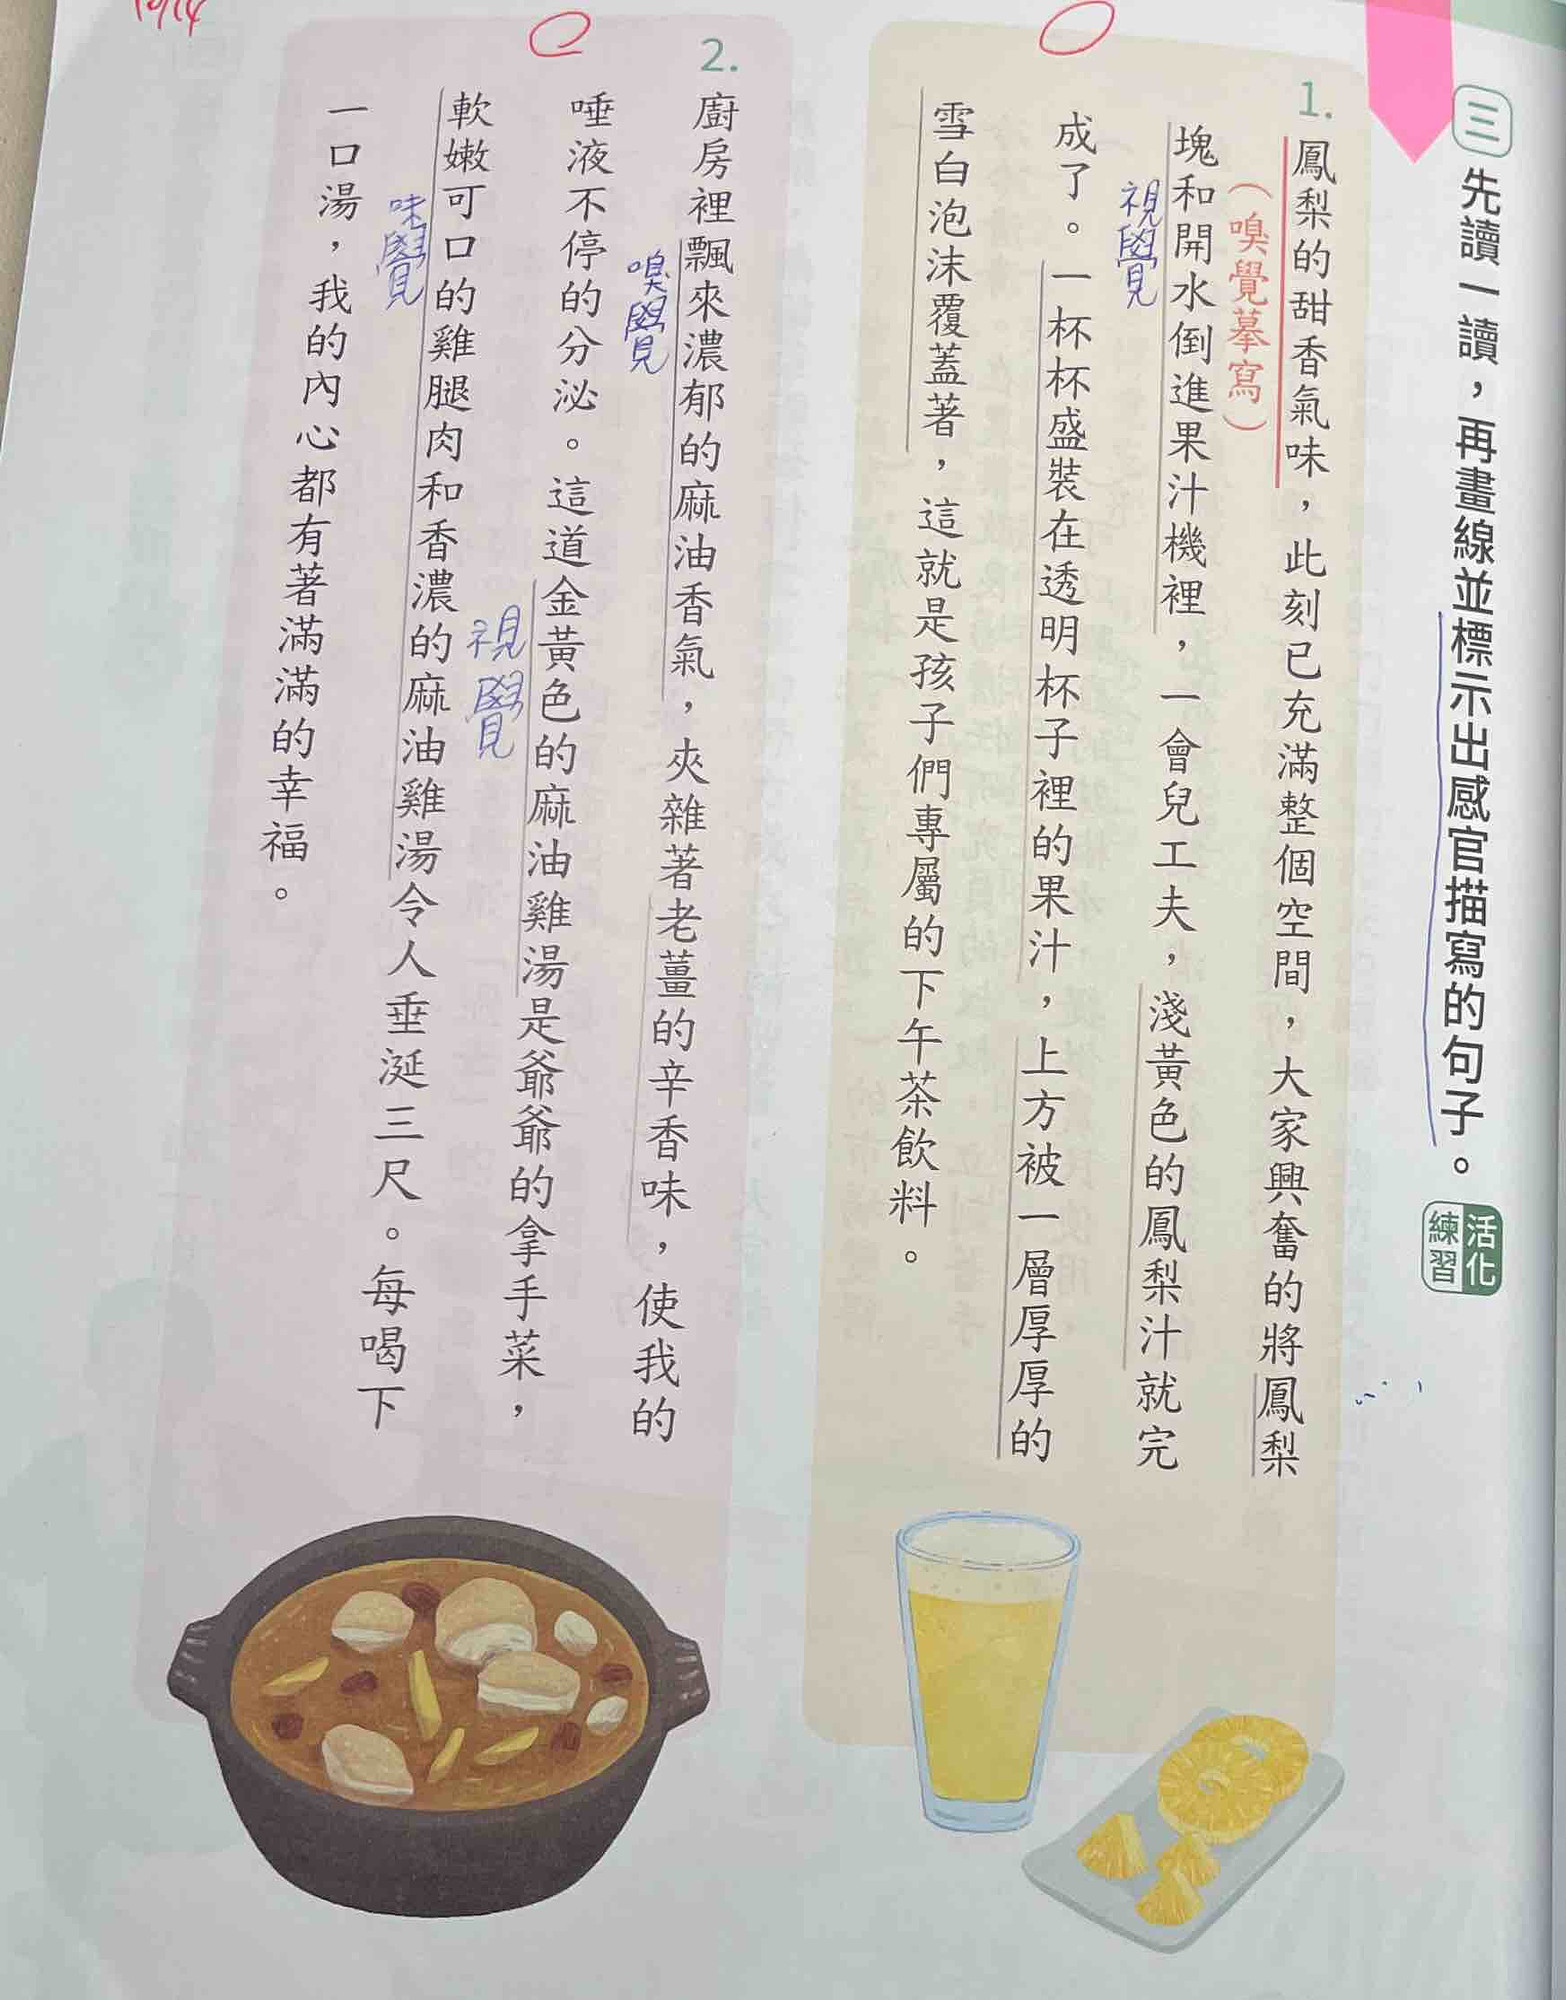 10/14
三 先讀一讀，再畫線並標示出感官描寫的句子。 活化練習
1. 鳳梨的甜香氣味，此刻已充滿整個空間，大家興奮的將鳳梨
（嗅覺摹寫）
塊和開水倒進果汁機裡，一會兒工夫，淺黃色的鳳梨汁就完
視覺
成了。一杯杯盛裝在透明杯子裡的果汁，上方被一層厚厚的
雪白泡沫覆蓋著，這就是孩子們專屬的下午茶飲料。
2. 廚房裡飄來濃郁的麻油香氣，夾雜著老薑的辛香味，使我的
嗅覺
唾液不停的分泌。這道金黃色的麻油雞湯是爺爺的拿手菜，
視覺
軟嫩可口的雞腿肉和香濃的麻油雞湯令人垂涎三尺。每喝下
味覺
一口湯，我的內心都有著滿滿的幸福。